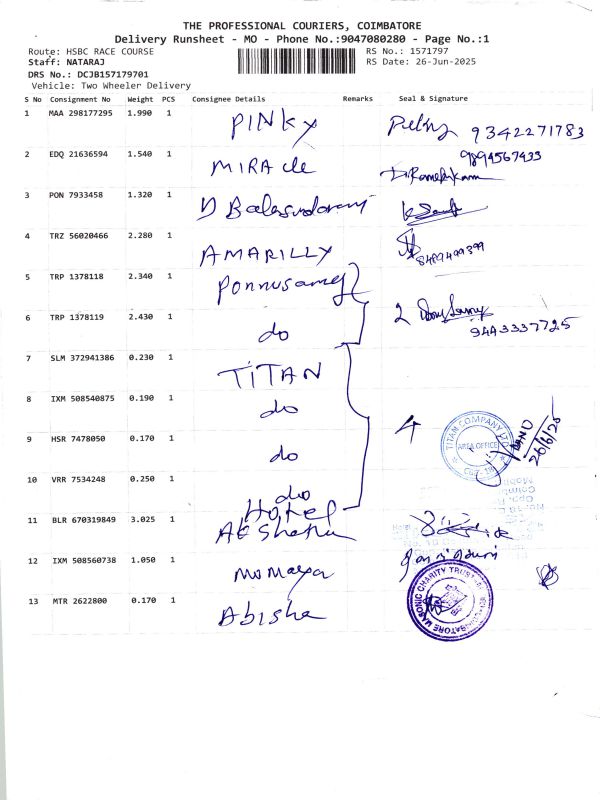 THE PROFESSIONAL COURIERS, COIMBATORE
Delivery Runsheet - MO - Phone No.:9047080280 - Page No.:1
Route: HSBC RACE COURSE RS No.: 1571797
Staff: NATARAJ RS Date: 26-Jun-2025
DRS No.: DCJB157179701
Vehicle: Two Wheeler Delivery
S No Consignment No Weight PCS Consignee Details Remarks Seal & Signature
1 MAA 298177295 1.990 1 PINKY 9342271783
2 EDQ 21636594 1.540 1 MIRAcle 9894567433
3 PON 7933458 1.320 1 D Balasundaram
4 TRZ 56020466 2.280 1 AMARILLY 8489499399
5 TRP 1378118 2.340 1 Ponnusamy
6 TRP 1378119 2.430 1 do 2 9443337725
7 SLM 372941386 0.230 1 TITAN
8 IXM 508540875 0.190 1 do
9 HSR 7478050 0.170 1 do 4 TITAN COMPANY LTD AREA OFFICE 26/6/25
10 VRR 7534248 0.250 1 do
11 BLR 670319849 3.025 1 Hotel
12 IXM 508560738 1.050 1
13 MTR 2622800 0.170 1 Abisha COIMBATORE MASONIC CHARITY TRUST